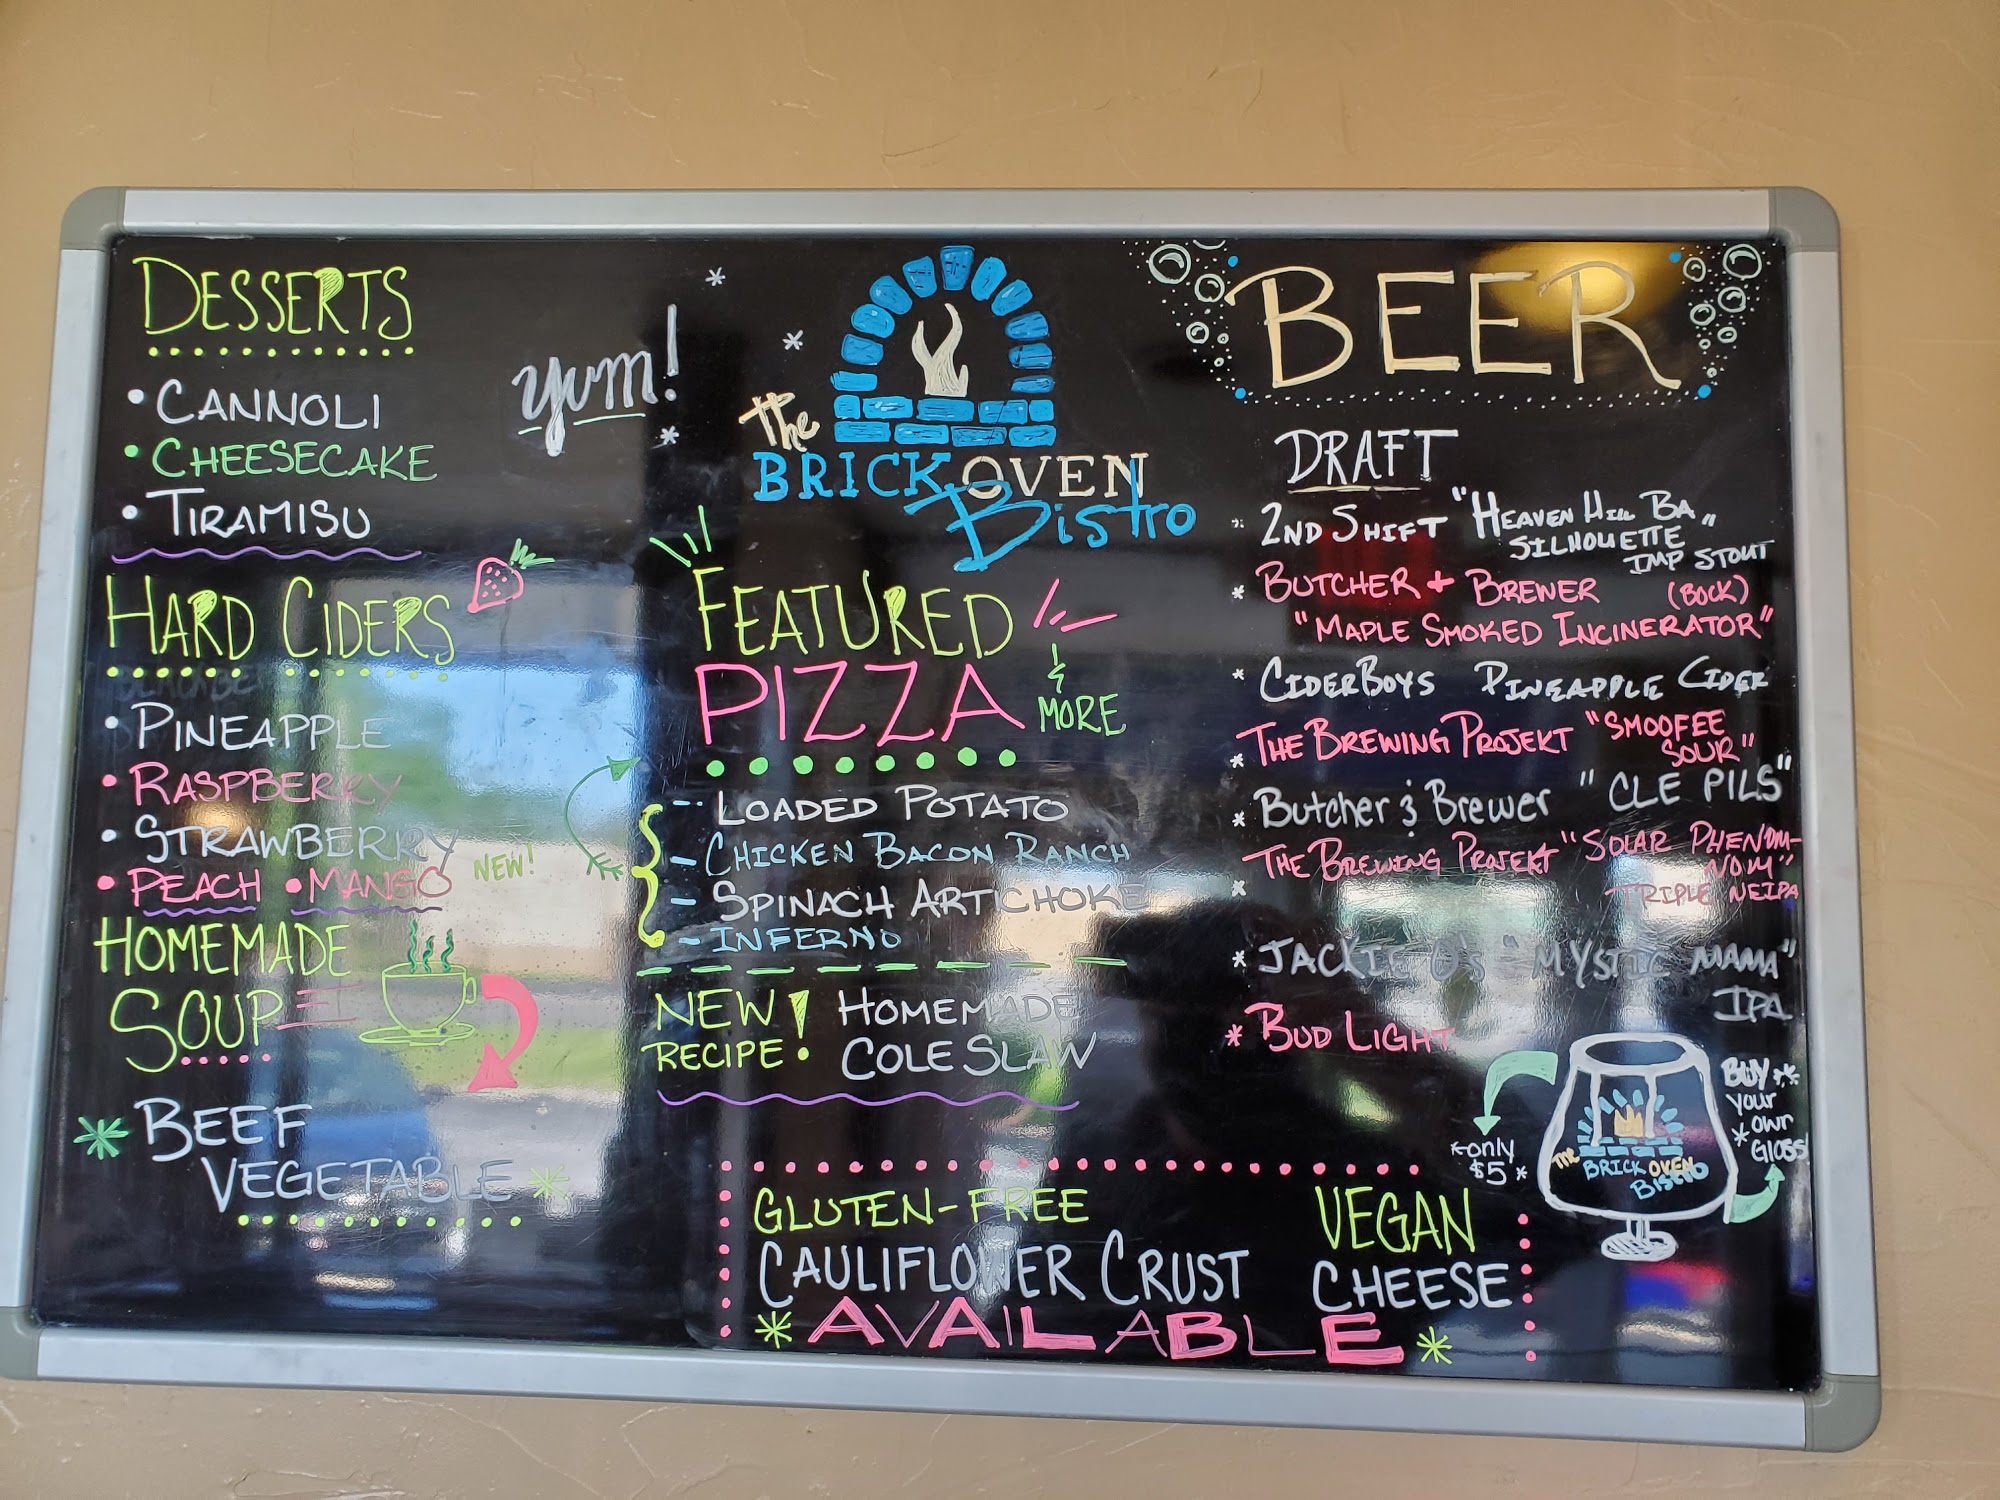 DESSERTS
• CANNOLI
• CHEESECAKE
• TIRAMISU
yum!
HARD CIDERS
• PINEAPPLE
• RASPBERRY
• STRAWBERRY
• PEACH • MANGO
NEW!
HOMEMADE
SOUP
* BEEF
VEGETABLE *
The
BRICK OVEN
Bistro
FEATURED
PIZZA
& MORE
- LOADED POTATO
- CHICKEN BACON RANCH
- SPINACH ARTICHOKE
- INFERNO
NEW RECIPE!
HOMEMADE
COLE SLAW
GLUTEN-FREE
CAULIFLOWER CRUST
VEGAN
CHEESE
* AVAILABLE *
BEER
DRAFT
* 2ND SHIFT "HEAVEN HILL BA
SILHOUETTE"
IMP STOUT
* BUTCHER + BREWER (BOCK)
"MAPLE SMOKED INCINERATOR"
* CIDERBOYS PINEAPPLE CIDER
* THE BREWING PROJEKT "SMOOFEE
SOUR"
* Butcher & Brewer "CLE PILS"
* THE BREWING PROJEKT "SOLAR PHENOM-
NOM"
TRIPLE NEIPA
* JACKIE O's "MYSTIC MAMA"
IPA
* BUD LIGHT
*only
$5*
The
BRICK OVEN
Bistro
BUY **
your
* own
Glass!